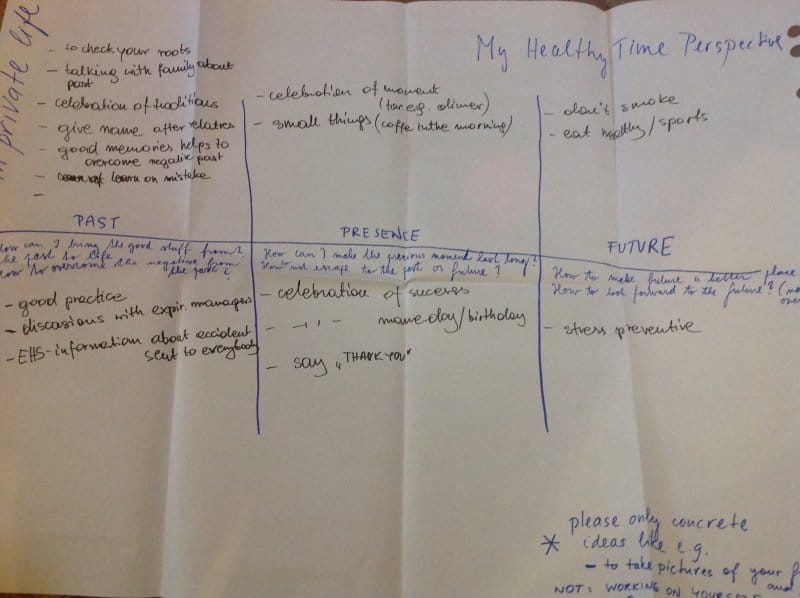 in private life
My Healthy Time Perspective
- to check your roots
- talking with family about
past
- celebration of traditions
- give name after relatives
- good memories helps to
overcome negative past
- learn on mistake
-
- celebration of moment
(for e.g. dinner)
- small things (coffe in the morning)
- don't smoke
- eat healthy/sports
PAST
How can I bring the good stuff from
the past to life?
How to overcome the negative from
the past?
- good practice
- discusions with expir. managers
- EHS-information about accident
sent to everybody
PRESENCE
How can I make the precious moment last long?
How not escape to the past or future?
- celebration of success
- -"- name day/birthday
- say „THANK YOU"
FUTURE
How to make future a better place
How to look forward to the future?
- stress preventive
please only concrete
* ideas like e.g.
- to take pictures of your
NOT: WORKING ON